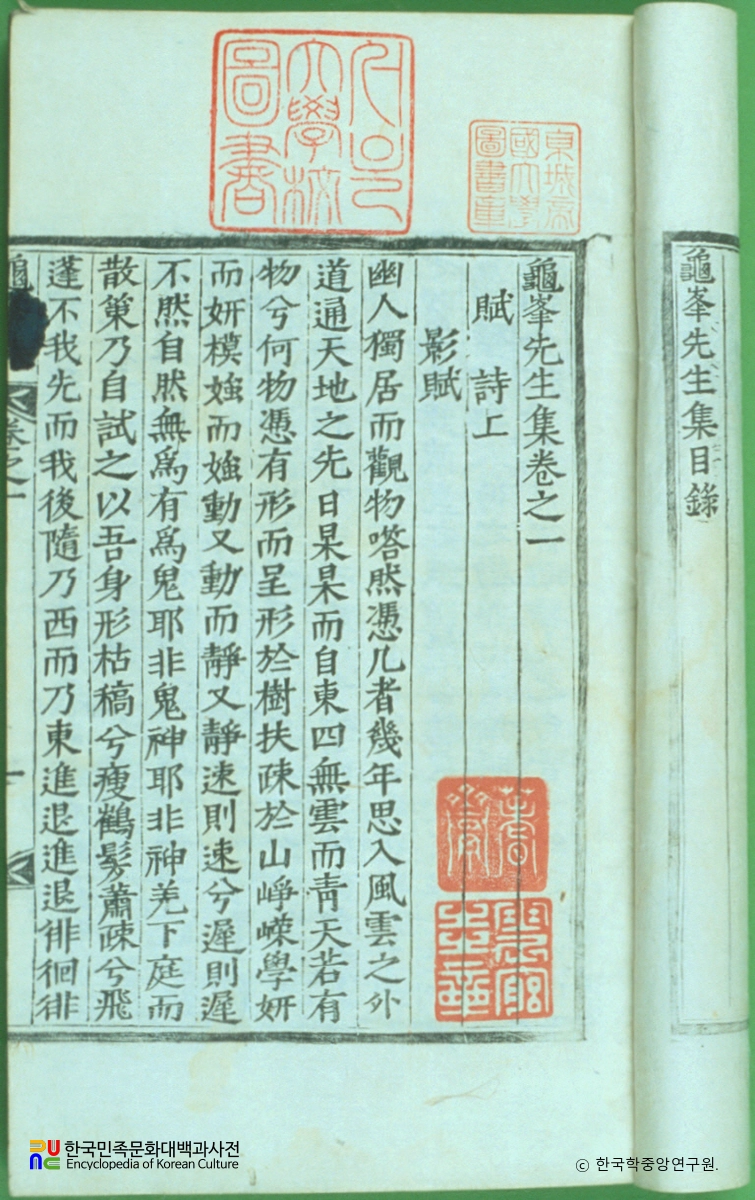 龜峯先生集目錄
龜峯先生集卷之一
賦 詩上
影賦
幽人獨居而觀物嗒然憑几者幾年思入風雲之外
道通天地之先日杲杲而自東四無雲而靑天若有
物兮何物憑有形而呈形於樹扶疎於山崢嶸學姸
而姸模媸而媸動又動而靜又靜速則速兮遲則遲
不然自然無爲有爲鬼耶非鬼神耶非神羌下庭而
散策乃自試之以吾身形枯稿兮瘦鶴髮蕭疎兮飛
蓬不我先而我後隨乃西而乃東進退進退徘徊徘
龜
卷之一
一
大學校
圖書
東城
國大學
圖書
한국민족문화대백과사전
Encyclopedia of Korean Culture
ⓒ 한국학중앙연구원.